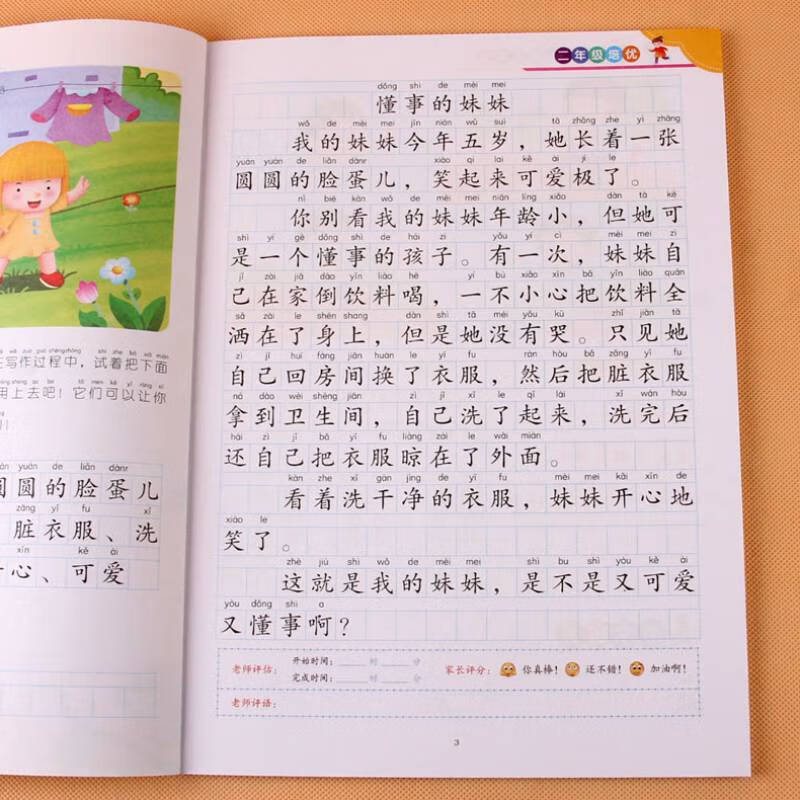 在写作过程中,试着把下面
用上去吧!它们可以让你
圆圆的脸蛋儿
脏衣服、洗
开心、可爱
二年级培优
dǒng shì de mèi mei
懂事的妹妹
wǒ de mèi mei jīn nián wǔ suì tā zhǎng zhe yì zhāng
我的妹妹今年五岁,她长着一张
yuán yuán de liǎn dànr xiào qǐ lái kě ài jí le
圆圆的脸蛋儿,笑起来可爱极了。
nǐ bié kàn wǒ de mèi mei nián líng xiǎo dàn tā kě
你别看我的妹妹年龄小,但她可
shì yí gè dǒng shì de hái zi yǒu yí cì mèi mei zì
是一个懂事的孩子。有一次,妹妹自
jǐ zài jiā dào yǐn liào hē yí bù xiǎo xīn bǎ yǐn liào quán
己在家倒饮料喝,一不小心把饮料全
sǎ zài le shēn shang dàn shì tā méi yǒu kū zhǐ jiàn tā
洒在了身上,但是她没有哭。只见她
zì jǐ huí fáng jiān huàn le yī fu rán hòu bǎ zāng yī fu
自己回房间换了衣服,然后把脏衣服
ná dào wèi shēng jiān zì jǐ xǐ le qǐ lái xǐ wán hòu
拿到卫生间,自己洗了起来,洗完后
hái zì jǐ bǎ yī fu liàng zài le wài miàn
还自己把衣服晾在了外面。
kàn zhe xǐ gān jìng de yī fu mèi mei kāi xīn de
看着洗干净的衣服,妹妹开心地
xiào le
笑了。
zhè jiù shì wǒ de mèi mei shì bu shì yòu kě ài
这就是我的妹妹,是不是又可爱
yòu dǒng shì a
又懂事啊?
老师评估: 开始时间: 时 分 家长评分: 你真棒! 还不错! 加油啊!
完成时间: 时 分
老师评语:
3